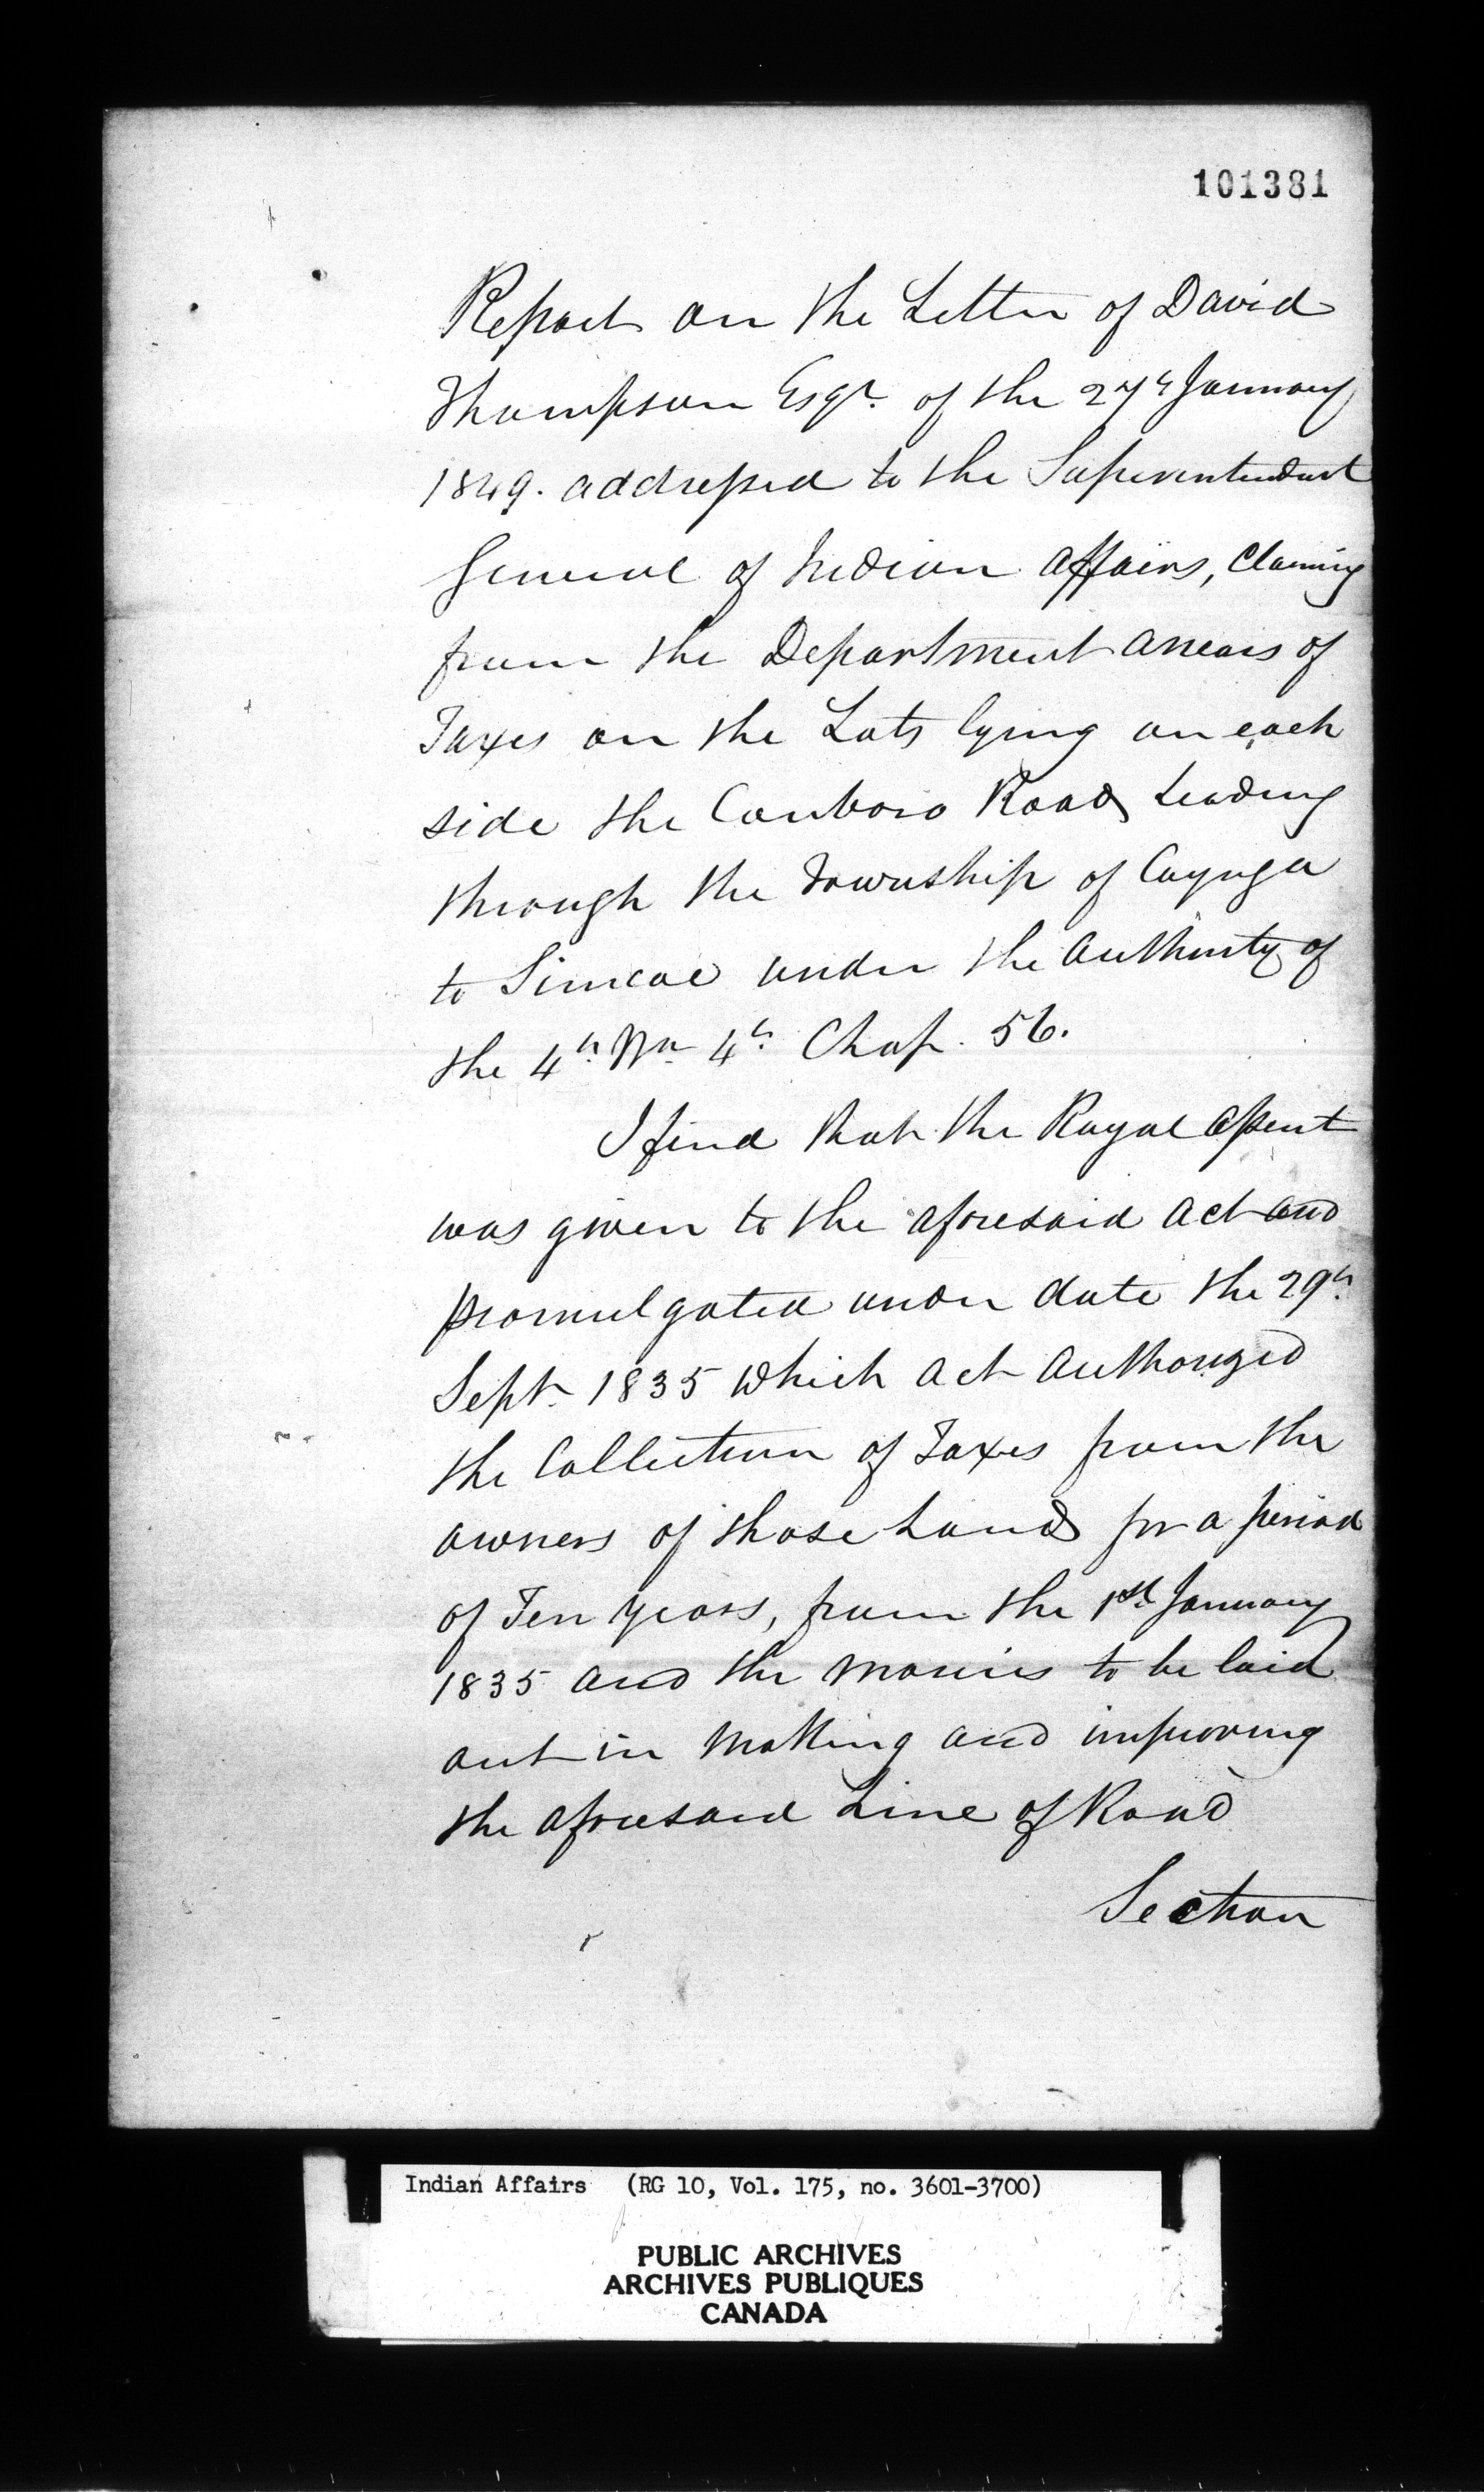 101381
Report on the Letter of David
Thompson Esqr. of the 27th January
1849. addressed to the Superintendent
General of Indian Affairs, Claiming
from the Department arrears of
Taxes on the Lots lying on each
side the Canboro Road Leading
through the Township of Cayuga
to Simcoe under the Authority of
the 4th Wm 4th Chap. 56.
I find that the Royal Assent
was given to the aforesaid Act and
promulgated under date the 29th
Sept. 1835 which Act Authorized
the Collection of Taxes from the
owners of those Lands for a period
of Ten years, from the 1st January
1835 and the monies to be laid
out in Making and improving
the aforesaid Line of Road
Section
Indian Affairs (RG 10, Vol. 175, no. 3601-3700)
PUBLIC ARCHIVES
ARCHIVES PUBLIQUES
CANADA